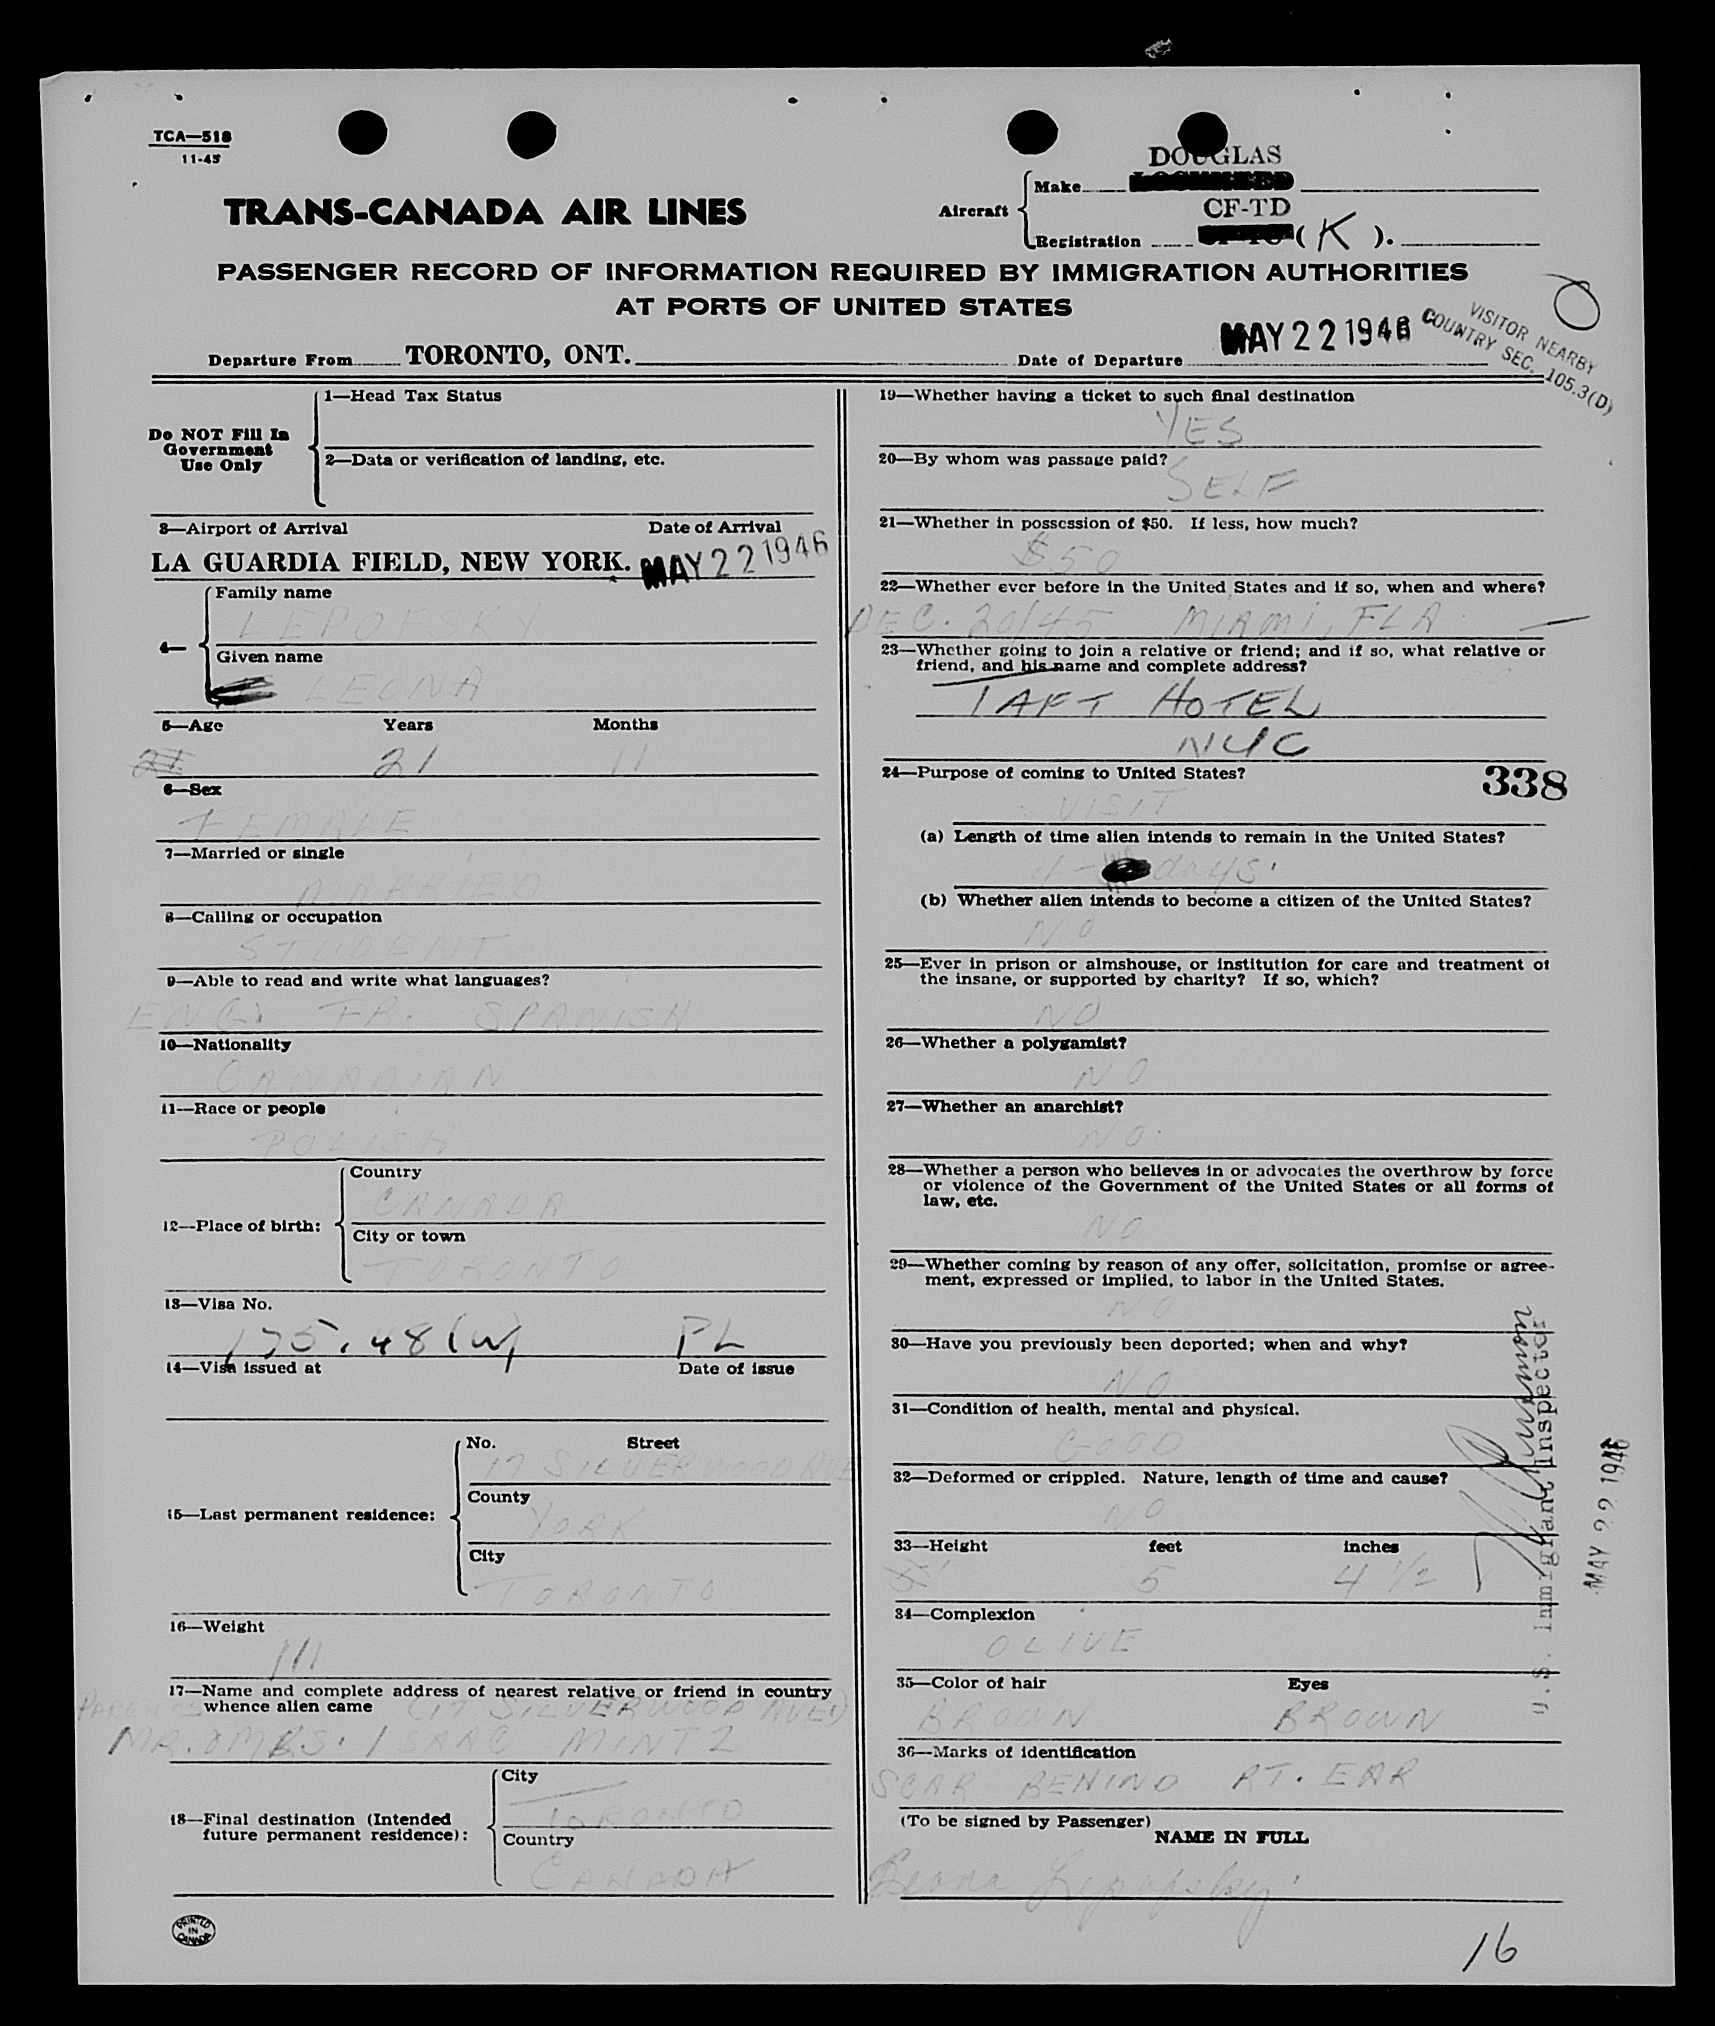 TCA—518
11-45
DOUGLAS
Aircraft
Make
CF-TD
Registration ( K ).
TRANS-CANADA AIR LINES
PASSENGER RECORD OF INFORMATION REQUIRED BY IMMIGRATION AUTHORITIES
AT PORTS OF UNITED STATES
VISITOR NEARBY
COUNTRY SEC. 105.3(D)
Departure From TORONTO, ONT. Date of Departure MAY 22 1946
Do NOT Fill In
Government
Use Only
1—Head Tax Status
2—Data or verification of landing, etc.
3—Airport of Arrival Date of Arrival
LA GUARDIA FIELD, NEW YORK. MAY 22 1946
4—
Family name
LEPOFSKY
Given name
LEONA
5—Age Years Months
21 11
6—Sex
FEMALE
7—Married or single
MARRIED
8—Calling or occupation
STUDENT
9—Able to read and write what languages?
ENG. FR. SPANISH
10—Nationality
CANADIAN
11—Race or people
POLISH
12—Place of birth:
Country
CANADA
City or town
TORONTO
13—Visa No.
175.48(W) PL
14—Visa issued at Date of issue
15—Last permanent residence:
No. Street
17 SILVERWOOD AVE
County
YORK
City
TORONTO
16—Weight
111
17—Name and complete address of nearest relative or friend in country
whence alien came (17 SILVERWOOD AVE)
PARENTS
MR. & MRS. ISAAC MINTZ
18—Final destination (Intended
future permanent residence):
City
TORONTO
Country
CANADA
PRINTED
IN
CANADA
19—Whether having a ticket to such final destination
YES
20—By whom was passage paid?
SELF
21—Whether in possession of $50. If less, how much?
$50
22—Whether ever before in the United States and if so, when and where?
DEC. 20/45 MIAMI, FLA.
23—Whether going to join a relative or friend; and if so, what relative or
friend, and his name and complete address?
TAFT HOTEL
NYC
24—Purpose of coming to United States?
338
VISIT
(a) Length of time alien intends to remain in the United States?
4 days.
(b) Whether alien intends to become a citizen of the United States?
NO
25—Ever in prison or almshouse, or institution for care and treatment of
the insane, or supported by charity? If so, which?
NO
26—Whether a polygamist?
NO
27—Whether an anarchist?
NO.
28—Whether a person who believes in or advocates the overthrow by force
or violence of the Government of the United States or all forms of
law, etc.
NO
29—Whether coming by reason of any offer, solicitation, promise or agree-
ment, expressed or implied, to labor in the United States.
NO
30—Have you previously been deported; when and why?
NO
31—Condition of health, mental and physical.
GOOD
32—Deformed or crippled. Nature, length of time and cause?
NO
33—Height feet inches
5 4 1/2
34—Complexion
OLIVE
35—Color of hair Eyes
BROWN BROWN
36—Marks of identification
SCAR BEHIND RT. EAR
(To be signed by Passenger)
NAME IN FULL
Leona Lepofsky
U.S. Immigrant Inspector
MAY 22 1946
16